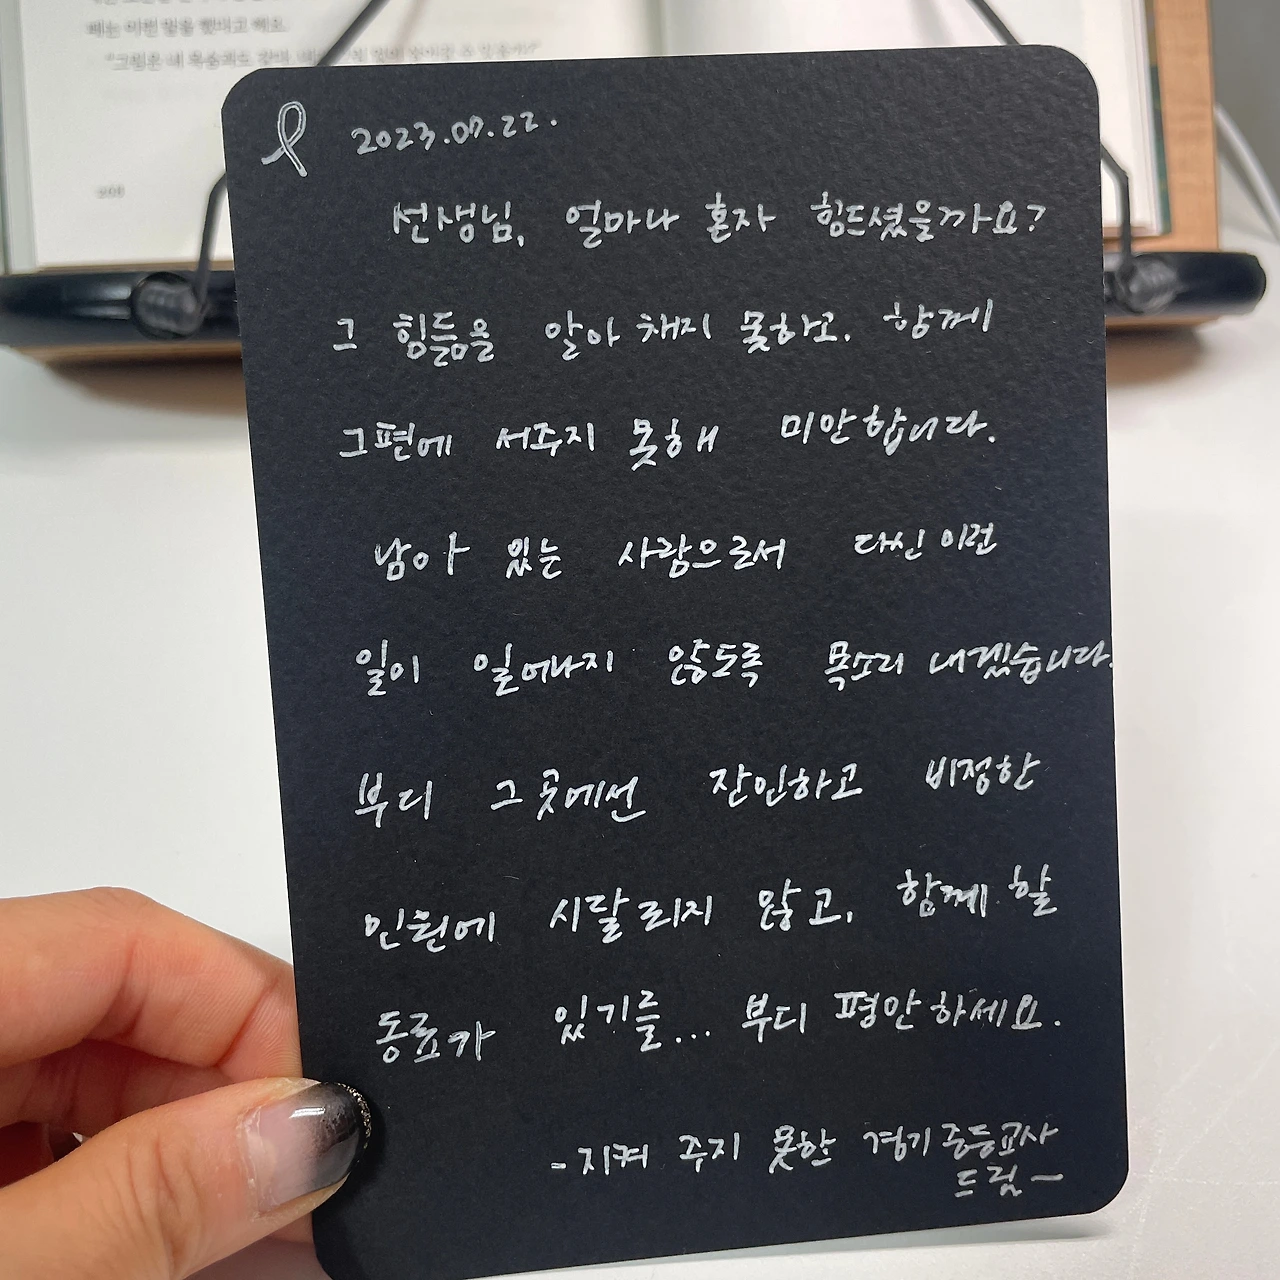 페는 이런 말을 했다고 해요.
"그림은 내 목숨과도 같다.
203
2023.07.22.
선생님, 얼마나 혼자 힘드셨을까요?
그 힘듦을 알아 채지 못하고, 함께
그편에 서주지 못해 미안합니다.
남아 있는 사람으로서 다신 이런
일이 일어나지 않도록 목소리 내겠습니다.
부디 그곳에선 잔인하고 비정한
민원에 시달리지 않고, 함께 할
동료가 있기를... 부디 평안하세요.
- 지켜 주지 못한 경기 중등교사
드림 -